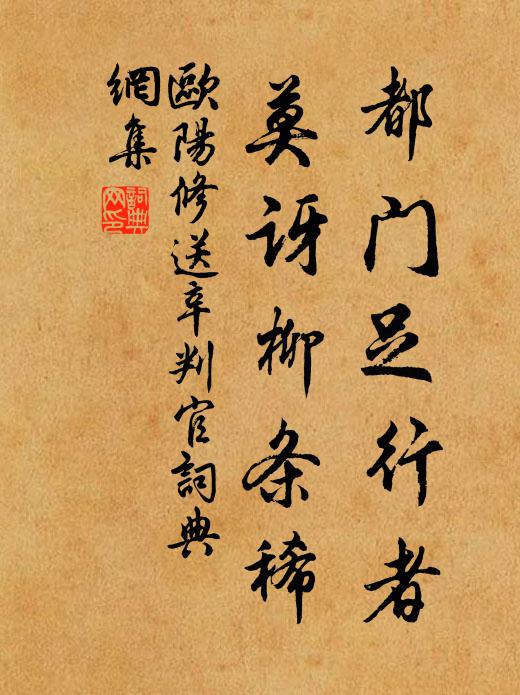 都门足行者
莫讶柳条稀
歐陽修送辛判官詞典
網集
詞典
网印